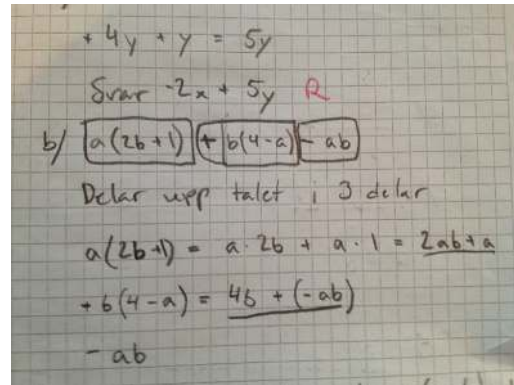 + 4y + y = 5y
Svar -2x + 5y R
b) a(2b+1) + b(4-a) - ab
Delar upp talet i 3 delar
a(2b+1) = a · 2b + a · 1 = 2ab+a
+ b(4-a) = 4b + (-ab)
- ab